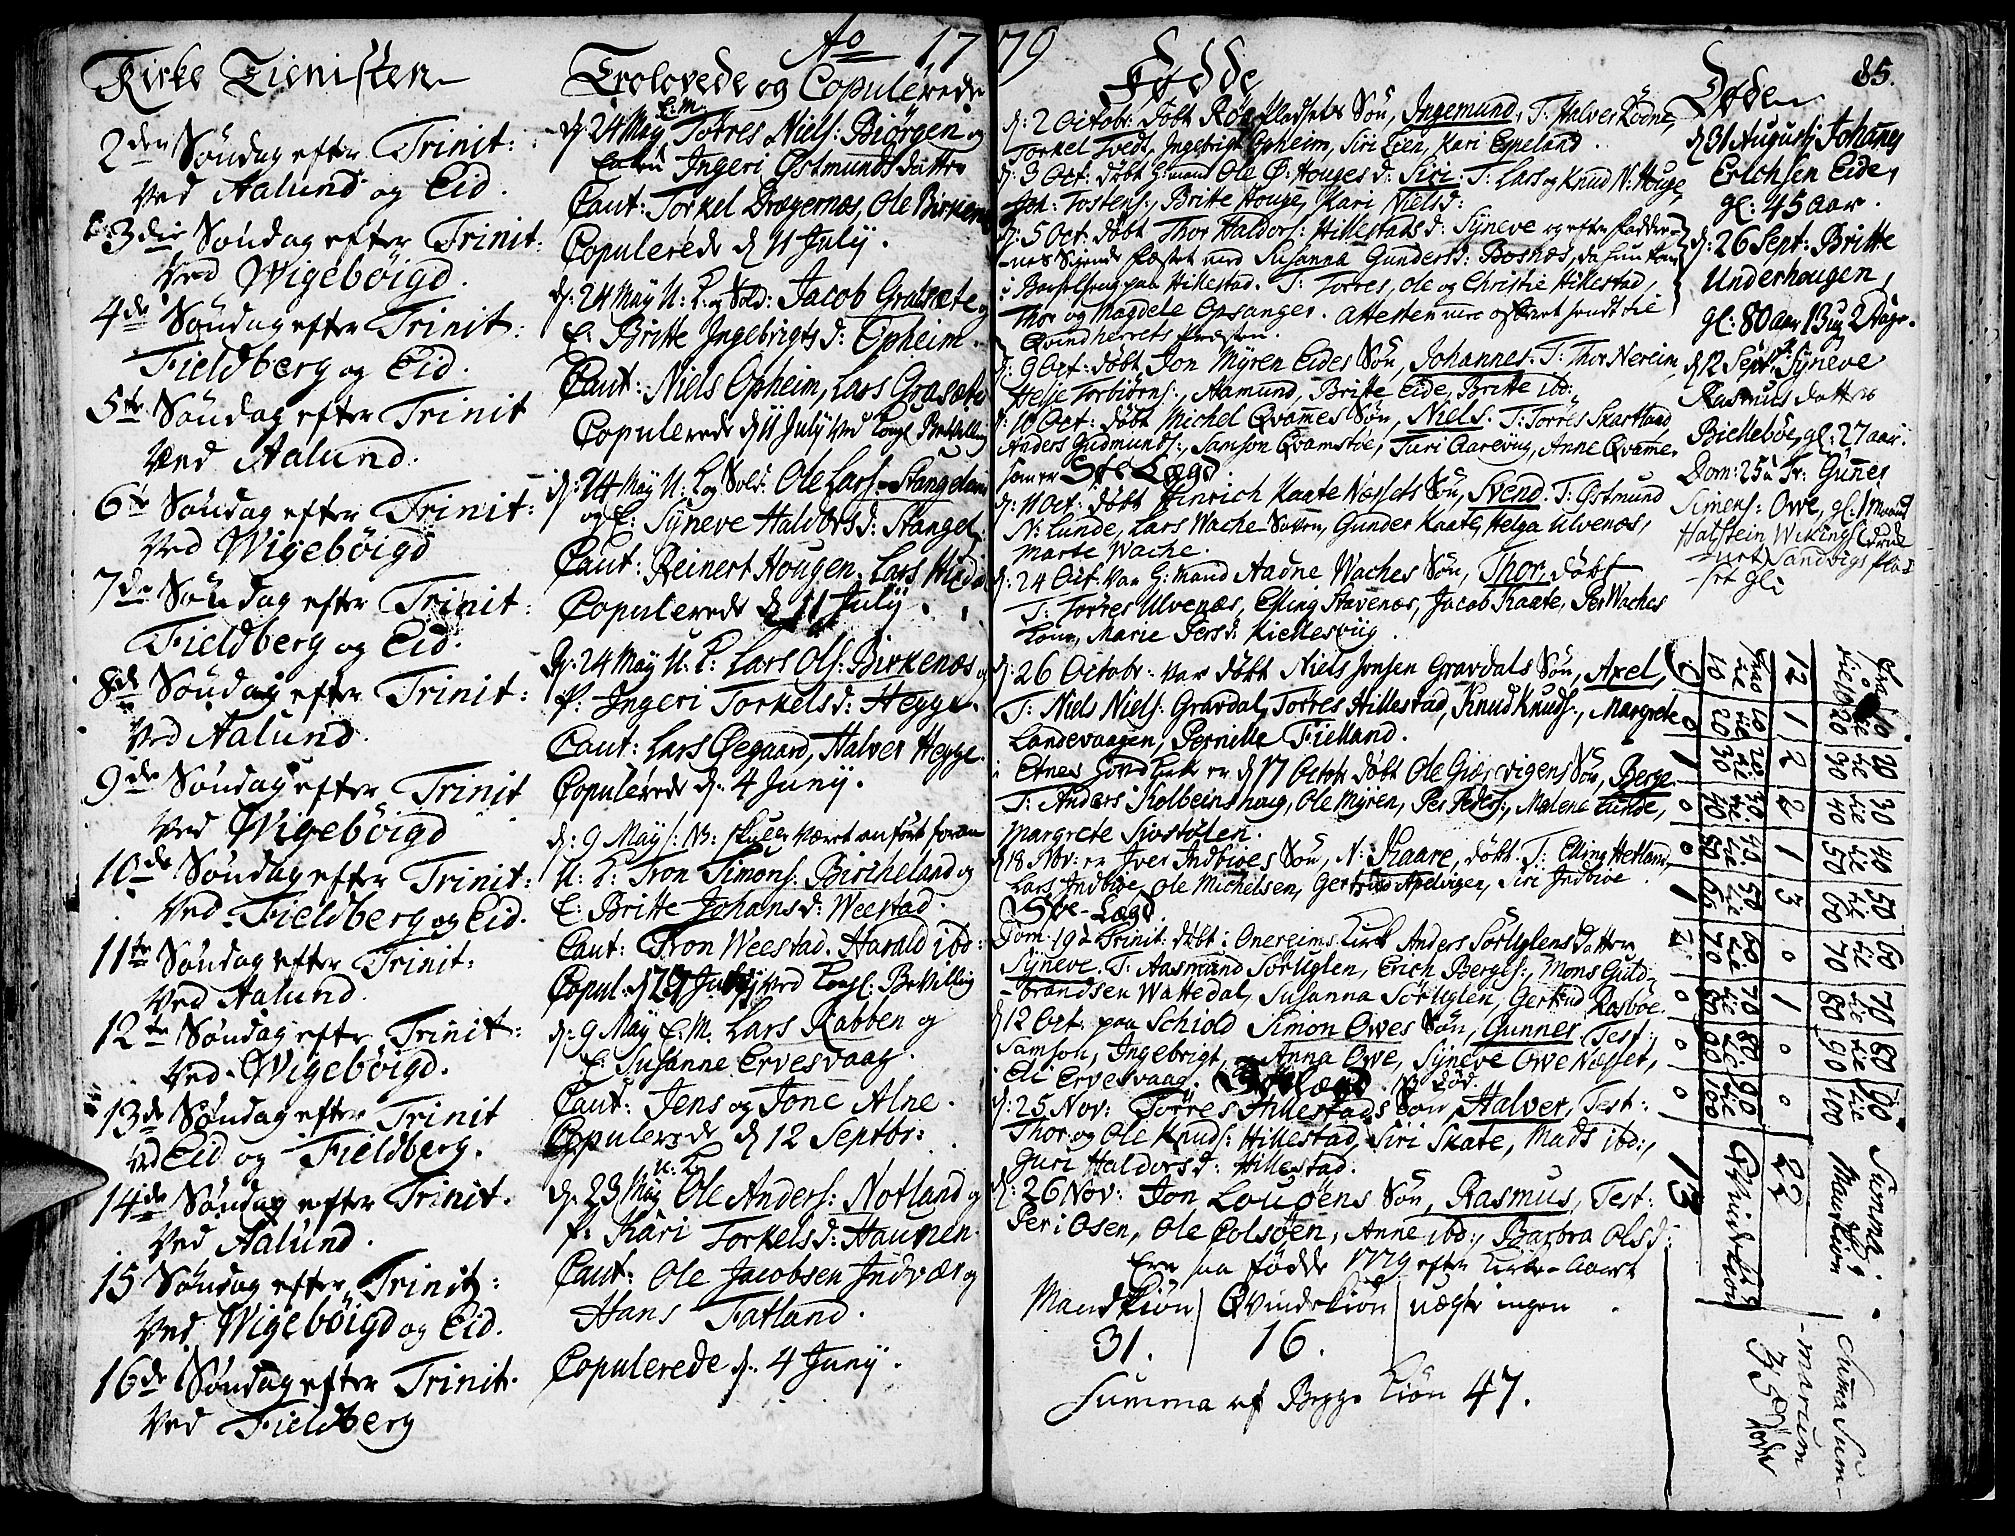 Ao 1779
85.
Kirke Tienisten
2den Søndag efter Trinit:
Ved Aalund og Eid.
3die Søndag efter Trinit:
Ved Wigebøigd.
4de Søndag efter Trinit:
Fieldberg og Eid.
5te Søndag efter Trinit
Ved Aalund.
6te Søndag efter Trinit:
Ved Wigebøigd
7de Søndag efter Trinit:
Fieldberg og Eid.
8de Søndag efter Trinit:
Ved Aalund.
9de Søndag efter Trinit
Ved Wigebøigd
10de Søndag efter Trinit:
Ved Fieldberg og Eid.
11te Søndag efter Trinit:
Ved Aalund.
12te Søndag efter Trinit:
Ved Wigebøigd.
13de Søndag efter Trinit
ved Eid og Fieldberg.
14de Søndag efter Trinit.
Ved Aalund.
15 Søndag efter Trinit:
Ved Wigebøigd og Eid.
16de Søndag efter Trinit.
Ved Fieldberg
Trolovede og Copulerede
E: M.
d: 24 May Tørres Niels: Biørgen og
Enken Ingeri Østmunds datter
Caut: Torkel Dragernæs, Ole Birkenæs
Copulerede d 11 July.
d: 24 May U: K: og Sold: Jacob Gratnæte og
E: Britte Ingebrigts d: Opheim.
Caut: Niels Opheim, Lars Grasæte
Copulerede d 11 July ved Kongl Bevilling
d: 24 May U: K og Sold: Ole Lars: Stangeland
og E: Syneve Halvors d: Stangel:
Caut: Reinert Hougen, Lars
Copulerede d 11 July.
d: 24 May U: K: Lars Ols: Birkenæs og
P: Ingeri Torkels d: Hegge.
Caut: Lars Øegaard, Halver Hegge.
Copulerede d: 4 Juny.
d: 9 May: NB: skulle været anført foran
U: K: Tron Simons: Bircheland og
E: Britte Johans d: Weestad.
Caut: Tron Weestad. Harald ibd:
Copul. d ved Kongl: Bevilling
d: 9 May E. M. Lars Rabben og
E: Susanne Ervesvaag.
Caut: Jens og Jone Alne.
Copulerede d 12 Septbr:
U: K
d: 23 May Ole Anders: Notland og
P: Kari Torkels d: Haunen.
Caut: Ole Jacobsen Indvær og
Hans Tatland.
Copulerede d: 4 Juny.
Fødde
d: 2 Octobr: døbt Røe Pladsets Søn, Ingemund, T: Halver Rødne,
Torkel Tvedt, Ingebrigt Opheim, Siri Lien, Kari Espeland.
d: 3 Oct: døbt G: mand Ole Ø: Houges d: Siri. T: Lars og Knud N: Houge,
Jon: Tostens:, Britte Houge, Kari Niels d:
d: 5 Oct: døbt Thor Haldors: Hillestats d: Syneve og efter fadder-
nes Sigende fæstet med Susanna Gunders d: Bosnæs, da hun kom
i Barsel Seng paa Hillestad. T: Torres, Ole og Christie Hillestad,
Thor og Magdele Opsanger. Attesten sendt til
Qvindherrets Præsten.
d: 9 Oct: døbt Jon Myren Eides Søn, Johannes. T: Thor Nereim,
Helje Torbiørns:, Aamund, Britte Eide, Britte ibd:
d: 10 Oct: døbt Michel Qvamnes Søn, Niels. T: Torres Skartland,
Anders Gudmunds:, Samson Qvamstøe, Turi Aarevig, Anne Qvamne.
som er Søe Lægd.
d: 11 Oct: døbt Hinrich Kaate Næsets Søn, Svend. T: Østmund
N: Lunde, Lars Wache Søvn, Gunder Kaate, Helga Ulvenæs,
Marte Wache.
d: 24 Oct: var G: mand Aadne Waches Søn, Thor, døbt
T: Tørres Ulvenæs, Elling Stavenæs, Jacob Kaate, Per Waches
Kone, Marie Pers d: Kiellesviig.
d: 26 Octobr: var døbt Niels Jonsen Gravdals Søn, Axel,
T: Niels Niels: Gravdal, Tørres Hillestad, Knud Knuds:, Margrete
Landevaagen, Pernille Fielland.
i Etnes er d 17 Octobr døbt Ole Giærvigens Søn, Berge
T: Anders Kolbeinshoug, Ole Myren, Per Peders:, Malene Lunde,
Margrete Sivstølen.
d 18 Nov: er Iver Indbioes Søn, N: Kaare, døbt. T: Elling Hetland,
Lars Indbioe, Ole Michelsen, Gertrud Apelvigen, Siri Indbioe.
Søe-Lægd.
Dom: 19 à Trinit: døbt i Onereims Kirke Anders Sørliglens Datter
Syneve. T: Aasmund Sørliglen, Erich Bergs:, Mons Guld-
brandsen Wattedal, Susanna Sørliglen, Gertrud Rosbøe.
d 12 Oct. paa Schiold Simon Owes Søn, Gunner, Test:
Samson, Ingebrigt, Anna Owe, Syneve Owe Næsset,
Eli Ervesvaag. Søe-lægd. NB: død.
d: 25 Nov: Tørres Hillestads Søn, Halver, Test:
Thor og Ole Knuds: Hillestad, Siri Skate, Mads ibd:,
Guri Haldors d: Hillestad.
d: 26 Nov: Jon Lougøens Søn, Rasmus, Test:
Per i Osen, Ole Colsøen, Anne ibd:, Barbra Ols d:
Ere saa fødde 1779 efter Kirke-Aaret
Mandkiøn | Qvindekiøn | uægte ingen
31. | 16.
Summa af Begge Kiøn 47.
Døden
d 31 Augusti Johannes
Erichsen Eide,
gl: 45 aar.
d: 26 Sept: Britte
Underhougen,
gl: 80 aar 13 ug 2 dage.
d 12 Sept: Syneve
Rasmus datter
Biellebøe, gl: 27 aar.
Dom: 25 à Tr: Gunner
Simens: Owe, gl: 1 Maaned
Halstein Wikings druk-
net Sandvigs plad-
set gl:
Fra 0 til 10 | 10 til 20 | 20 til 30 | 30 til 40 | 40 til 50 | 50 til 60 | 60 til 70 | 70 til 80 | 80 til 90 | 90 til 100 | Summa. Mandkiøn
12 | 1 | 2 | 2 | 1 | 3 | 0 | 1 | 0 | 0 | 22
Fra 0 til 10 | 10 til 20 | 20 til 30 | 30 til 40 | 40 til 50 | 50 til 60 | 60 til 70 | 70 til 80 | 80 til 90 | 90 til 100 | Qvindekiøn
9 | 0 | 1 | 0 | 0 | 1 | 2 | 0 | 0 | 0 | 13
Suma Sum-
marum